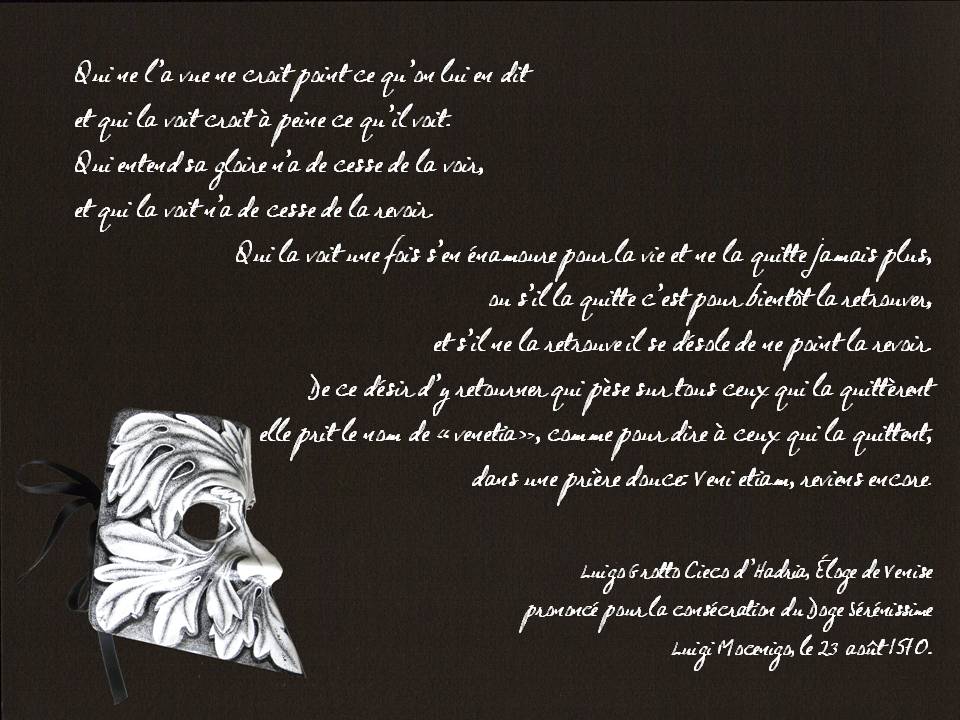 Qui ne l'a vue ne croit point ce qu'on lui en dit
et qui la voit croit à peine ce qu'il voit.
Qui entend sa gloire n'a de cesse de la voir,
et qui la voit n'a de cesse de la revoir.
Qui la voit une fois s'en énamoure pour la vie et ne la quitte jamais plus,
ou s'il la quitte c'est pour bientôt la retrouver,
et s'il ne la retrouve il se désole de ne point la revoir.
De ce désir d'y retourner qui pèse sur tous ceux qui la quittèrent
elle prit le nom de «venetia», comme pour dire à ceux qui la quittent,
dans une prière douce: Veni etiam, reviens encore.
Luigo Grotto Cieco d'Hadria, Éloge de Venise
prononcé pour la consécration du Doge Sérénissime
Luigi Mocenigo, le 23 août 1570.